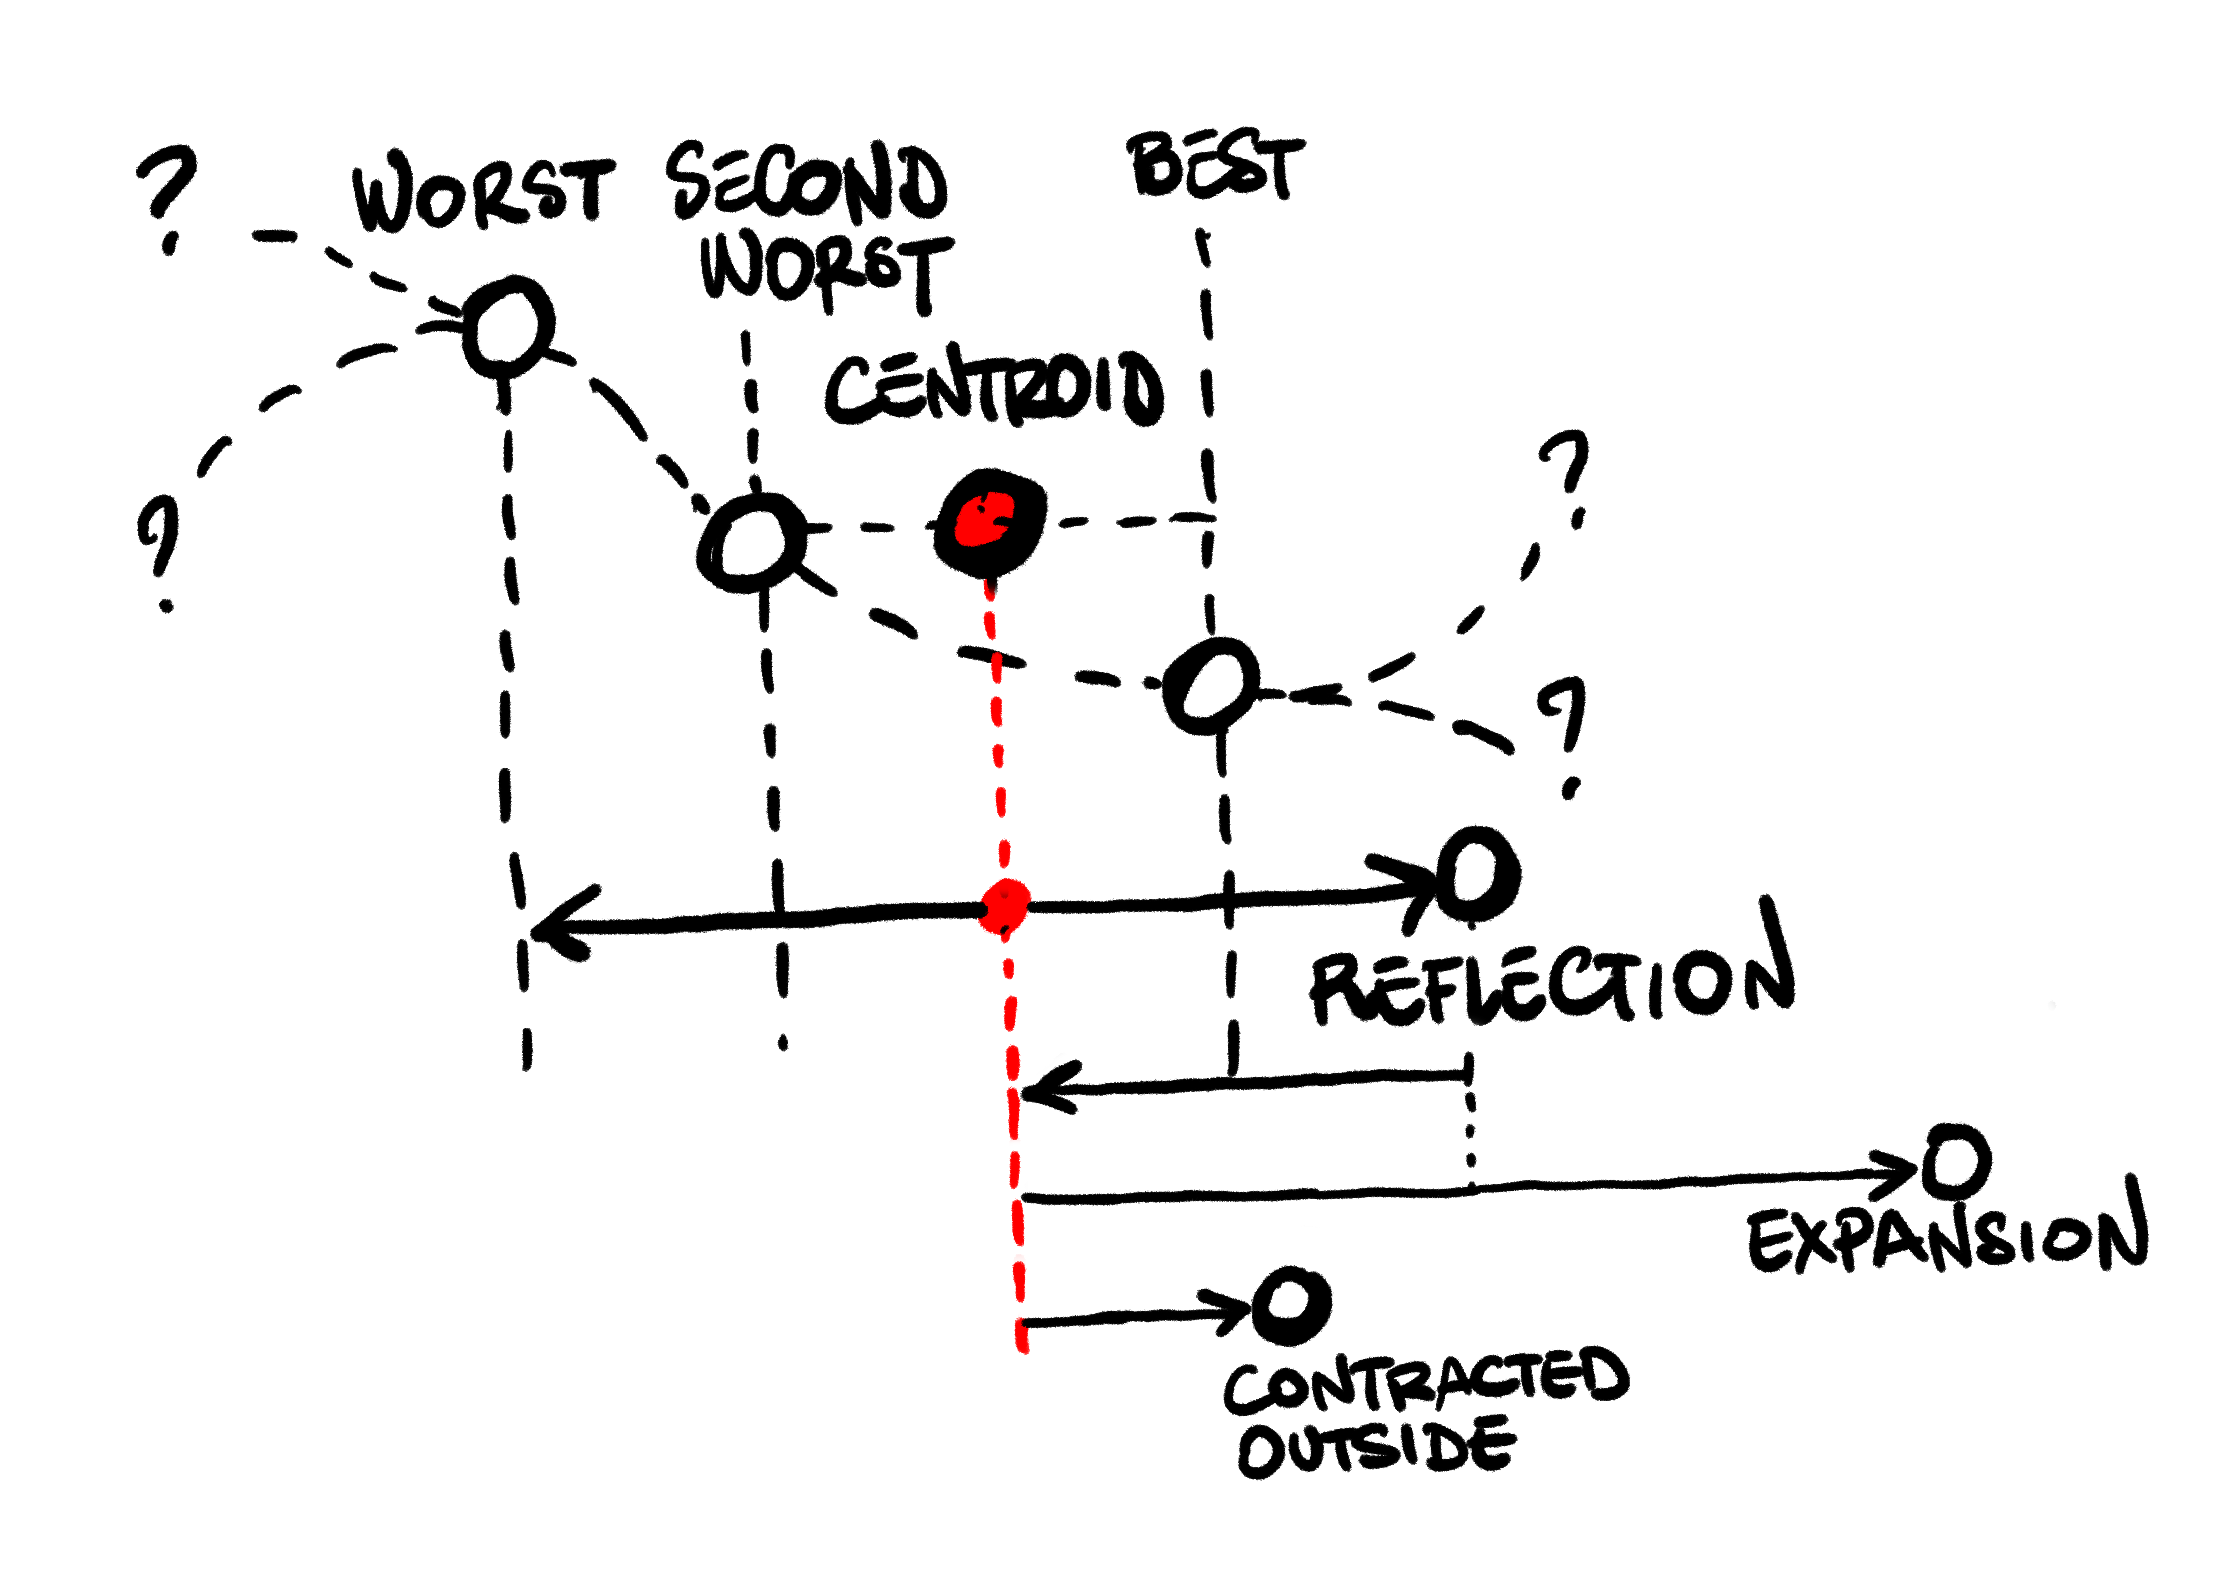 ?
WORST
SECOND
WORST
BEST
CENTROID
?
?
?
REFLECTION
EXPANSION
CONTRACTED
OUTSIDE